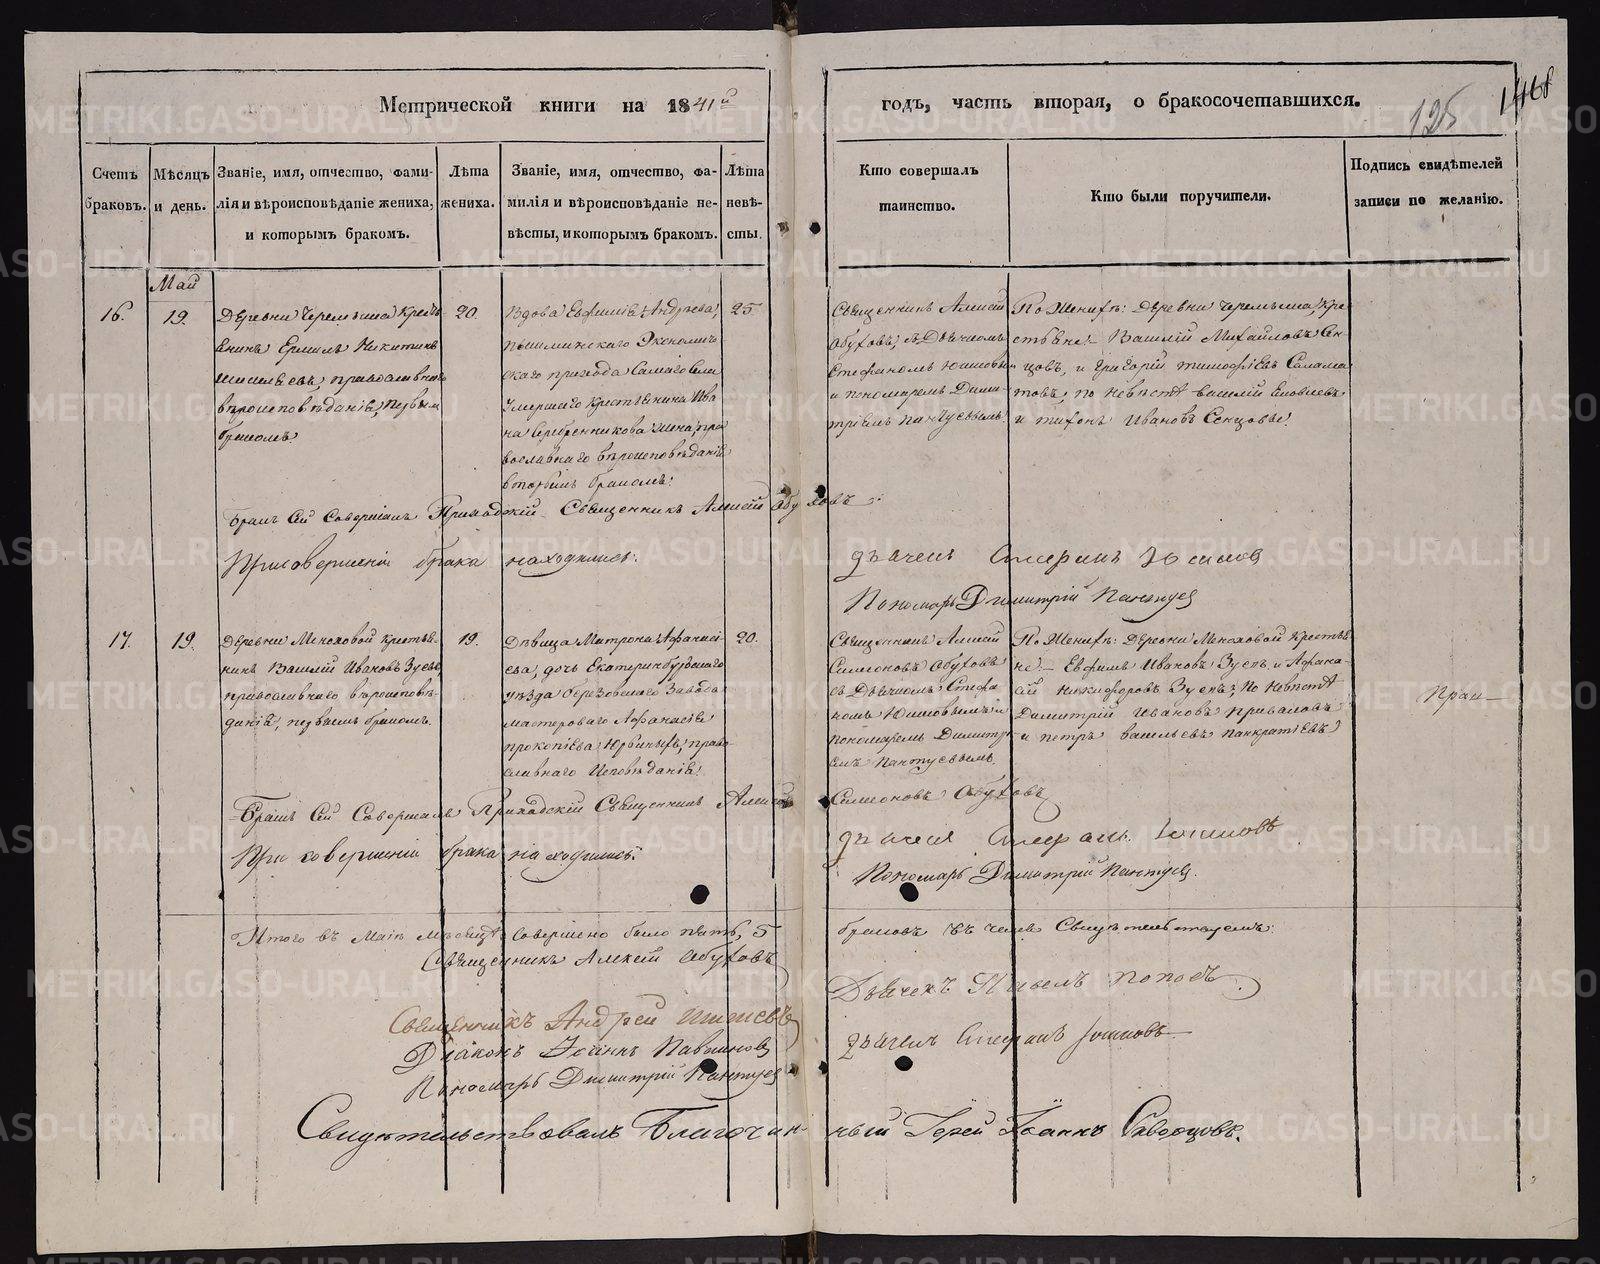 Метрической книги на 1841й
годъ, часть вторая, о бракосочетавшихся.
125
1468
Счетъ браковъ.
Мѣсяцъ и день.
Званіе, имя, отчество, фами-
лія и вѣроисповѣданіе жениха,
и которымъ бракомъ.
Лѣта жениха.
Званіе, имя, отчество, фа-
милія и вѣроисповѣданіе не-
вѣсты, и которымъ бракомъ.
Лѣта невѣ-
сты.
Кто совершалъ
таинство.
Кто были поручители.
Подпись свидѣтелей
записи по желанію.
Май
16.
19.
Деревни Черемыша Кресть
янинъ Ермилъ Никитинъ
православнаго
вѣроисповѣданія, первымъ
бракомъ
20.
Вдова Евфимія Андреева,
Пышминскаго Экономиче
скаго прихода Самаго села
Умершаго крестьянина Ива
на Серебренникова жена, пра
вославнаго вѣроисповѣданія
вторымъ бракомъ.
25
Священникъ Алексій
Обуховъ, съ Дьячкомъ
Стефаномъ Юшковым
и пономаремъ Дими-
тріемъ Пантуевымъ.
По Женихѣ: Деревни Черемыша, Кре-
стьяне: Василій Михайловъ Сен-
цовъ, и Григорій Тимофеевъ Салама
товъ, по невѣстѣ Василій Яковлевъ
и Тихонъ Ивановъ Сенцовы.
Бракъ Сей Совершалъ Приходскій Священникъ Алексій Обуховъ.
При совершеніи брака находились:
дьячекъ Стефанъ Юшковъ
Пономарь Димитрій Пантуев
17.
19.
Деревни Меноховой крестья-
нинъ Василій Ивановъ Зуевъ,
православнаго вѣроисповѣ-
данія, первымъ бракомъ.
19.
Дѣвица Матрона Афанась
ева, дочь Екатеринбургскаго
уѣзда Березовскаго Завода
мастероваго Афанасія
Прокопіева Юрьиныхъ, право
славнаго Исповѣданія.
20.
Священникъ Алексій
Симеоновъ Обуховъ
съ Дьячкомъ Стефа
номъ Юшковымъ и
пономаремъ Димитрі
емъ Пантуевымъ.
По Женихѣ: Деревни Меноховой Крестья
не: Евфимъ Ивановъ Зуевъ, и Афана-
сій Никифоровъ Зуевъ; По невѣстѣ
Димитрій Ивановъ Приваловъ
и Петръ Васильевъ Панкратьевъ
Бракъ Сей Совершалъ Приходскій Священникъ Алексій
Симеоновъ Обуховъ
При совершеніи брака находились:
дьячекъ Стефанъ Юшковъ
Пономарь Димитрій Пантуев.
Итого въ Маіѣ мѣсяцѣ Совершено было пять, 5
браковъ въ чемъ Свидѣтельствуемъ:
Священникъ Алексій Обуховъ
Дьячекъ Павелъ Поповъ
Священникъ Андрей
дьячекъ Стефанъ Юшковъ
Діаконъ Іоаннъ Павлиновъ
Пономарь Димитрій Пантуев
Свидѣтельствовалъ Благочин-
ный Іерей Іоаннъ Скворцовъ.
METRIKI.GASO-URAL.RU